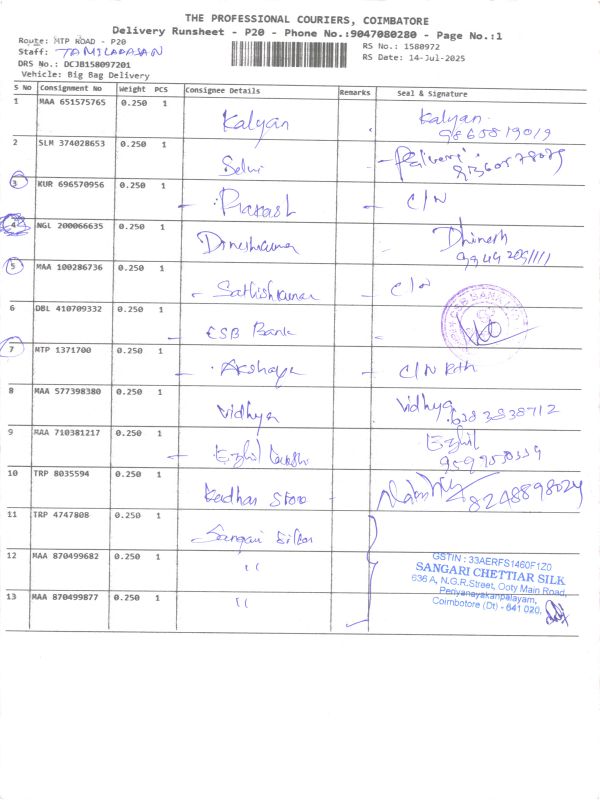 THE PROFESSIONAL COURIERS, COIMBATORE
Delivery Runsheet - P20 - Phone No.:9047080280 - Page No.:1
Route: MTP ROAD - P20
RS No.: 1580972
Staff: TAMILARASAN
RS Date: 14-Jul-2025
DRS No.: DCJB158097201
Vehicle: Big Bag Delivery
S No Consignment No Weight PCS Consignee Details Remarks Seal & Signature
1 MAA 651575765 0.250 1 Kalyan Kalyan
9865819019
2 SLM 374028653 0.250 1 Selvi
3 KUR 696570956 0.250 1 Prakash C/N
4 NGL 200066635 0.250 1 Dineshkumar Dhinesh
5 MAA 100286736 0.250 1 Sathishkumar C/N
6 DBL 410709332 0.250 1 CSB Bank
7 MTP 1371700 0.250 1 Akshaya C/N
8 MAA 577398380 0.250 1 Vidhya Vidhya
6383838712
9 MAA 710381217 0.250 1 Ezhil Ezhil
10 TRP 8035594 0.250 1 Kadhar Store
8248898024
11 TRP 4747808 0.250 1 Sangari Silks
12 MAA 870499682 0.250 1 "
13 MAA 870499877 0.250 1 "
GSTIN : 33AERFS1460F1Z0
SANGARI CHETTIAR SILK
636 A, N.G.R.Street, Ooty Main Road,
Periyanayakanpalayam,
Coimbatore (Dt) - 641 020.